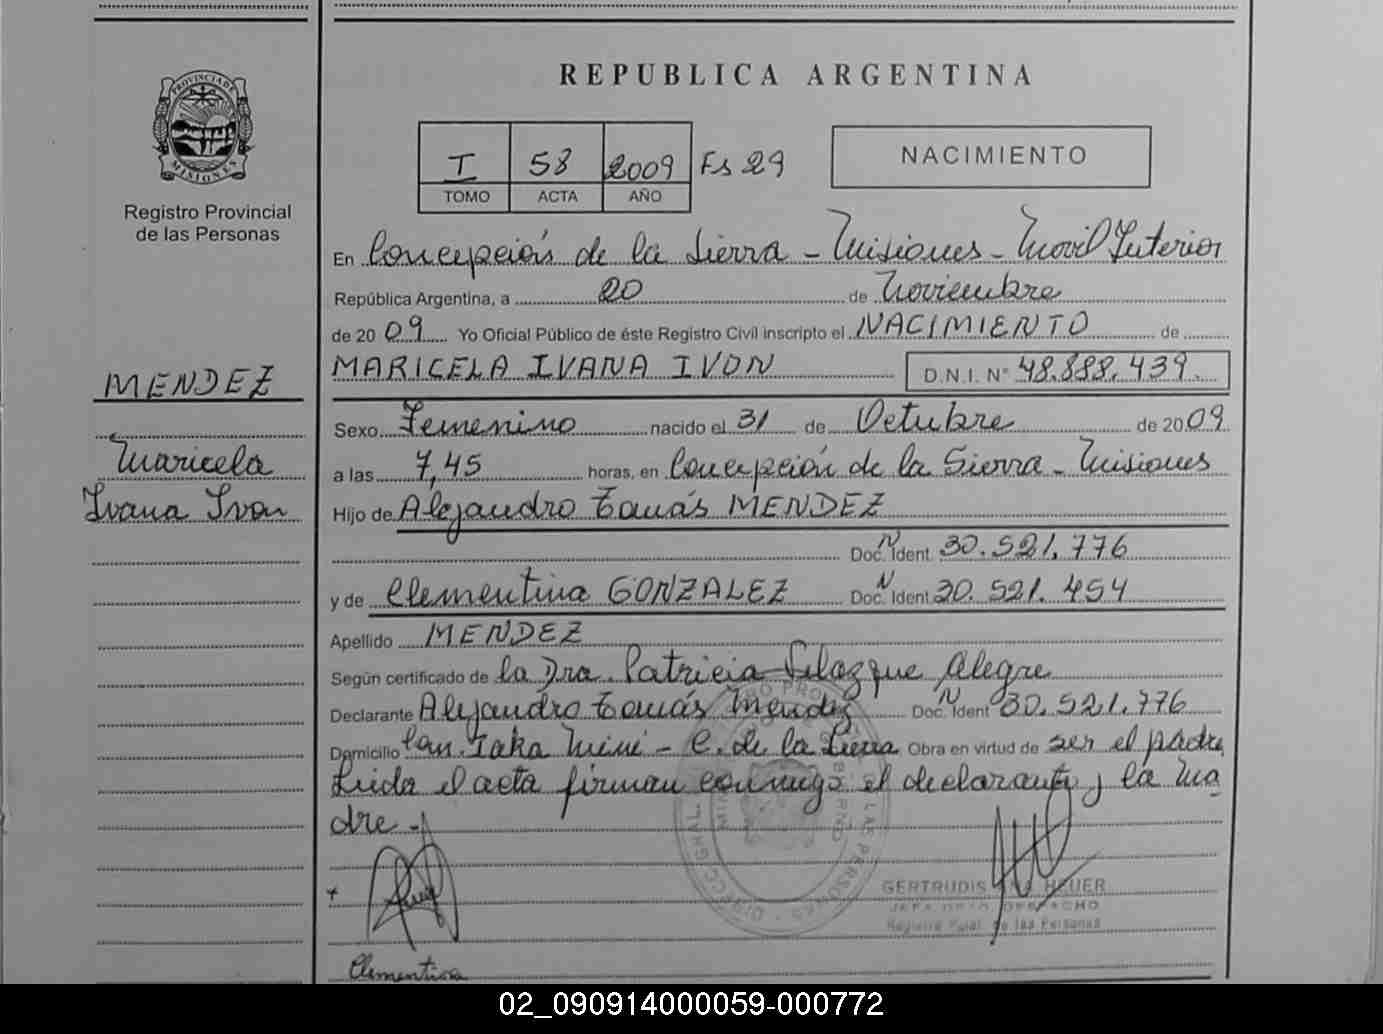 REPUBLICA ARGENTINA
PROVINCIA DE
MISIONES
Registro Provincial
de las Personas
I 58 2009 Fs 29
TOMO ACTA AÑO
NACIMIENTO
En Concepción de la Sierra - Misiones - Movil Interior
República Argentina, a 20 de Noviembre
de 2009 Yo Oficial Público de éste Registro Civil inscripto el NACIMIENTO de
MARICELA IVANA IVON D.N.I. N° 48.888.439.
MENDEZ
Maricela
Ivana Ivon
Sexo Femenino nacido el 31 de Octubre de 2009
a las 7,45 horas, en Concepción de la Sierra - Misiones
Hijo de Alejandro Tomás MENDEZ
Doc. N Ident. 30.521.776
y de Clementina GONZALEZ Doc. N Ident 30.521.454
Apellido MENDEZ
Según certificado de la Dra. Patricia Alegre
Declarante Alejandro Tomás Mendez Doc. N Ident 30.521.776
Domicilio - C. de la Sierra Obra en virtud de ser el padre
Leida el acta firman conmigo el declarante y la ma
dre.-
GERTRUDIS HEUER
JEFA DESPACHO
Registro de las Personas
Clementina
02_090914000059-000772